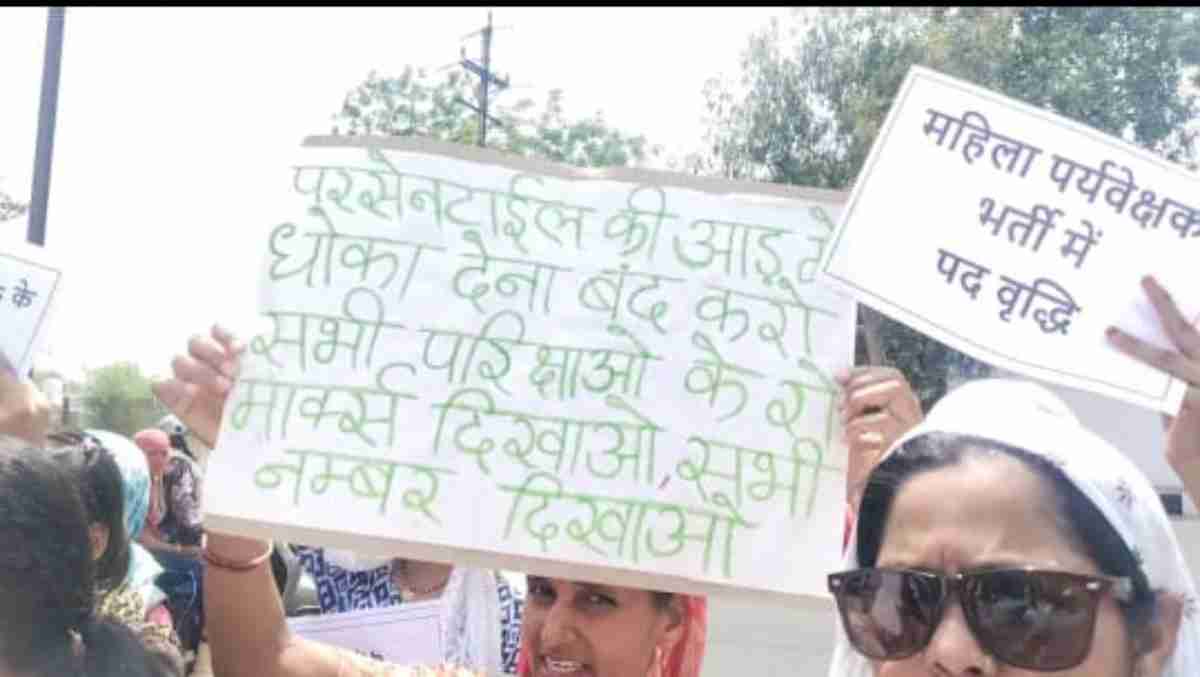 परसेनटाईल की आड़ से
धोका देना बंद करो
सभी परिक्षाओ के रो
मार्क्स दिखाओ, सभी
नम्बर दिखाओ
महिला पर्यवेक्षक
भर्ती में
पद वृद्धि
के